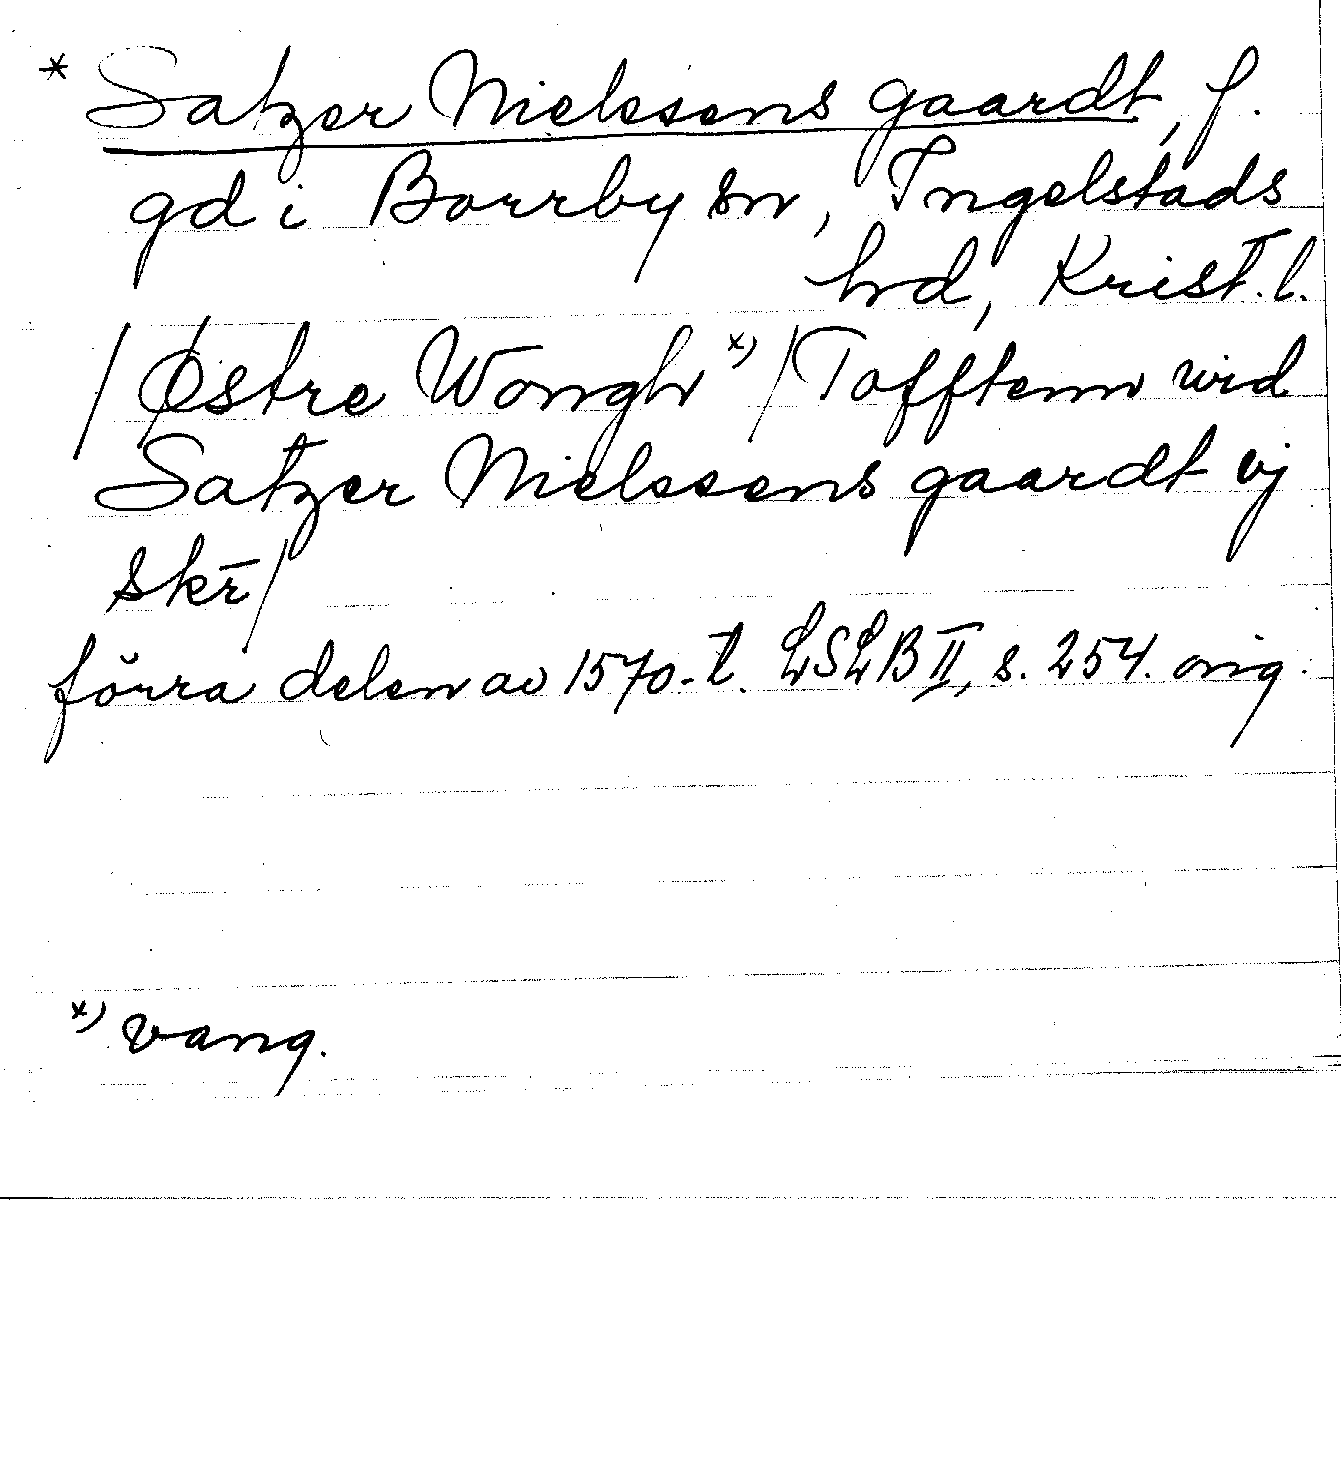 * Satzer Nielssens gaardt, f.
gd i Borrby sn, Ingelstads
hd, Krist. l.
/ Østre Wongh x) / Tofftenn wid
Satzer Nielssens gaardt vj
skr̄ /
förra delen av 1570-t. LSLB II, s. 254. orig.
x) vang.